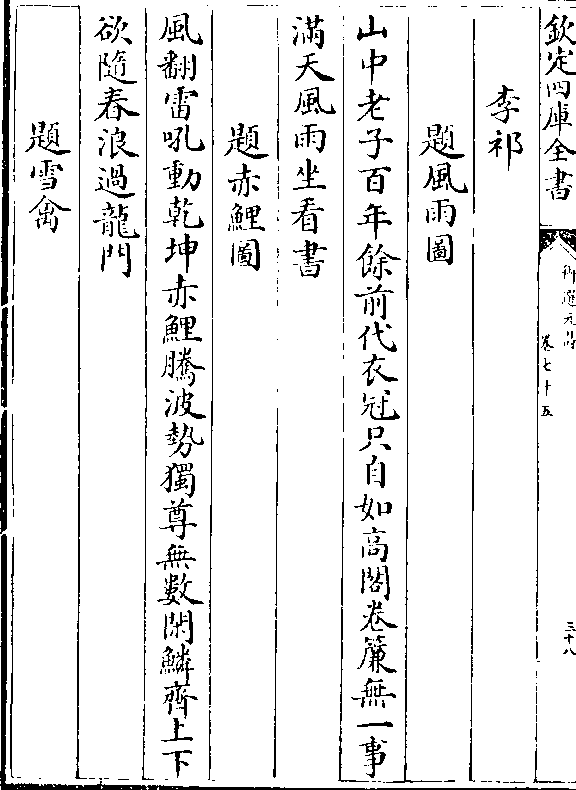 欽定四庫全書
御選元詩
卷七十五
三十八
李祁
題風雨圖
山中老子百年餘前代衣冠只自如高閣卷簾無一事
滿天風雨坐看書
題赤鯉圖
風翻雷吼動乾坤赤鯉騰波勢獨尊無數閑鱗齊上下
欲隨春浪過龍門
題雪禽